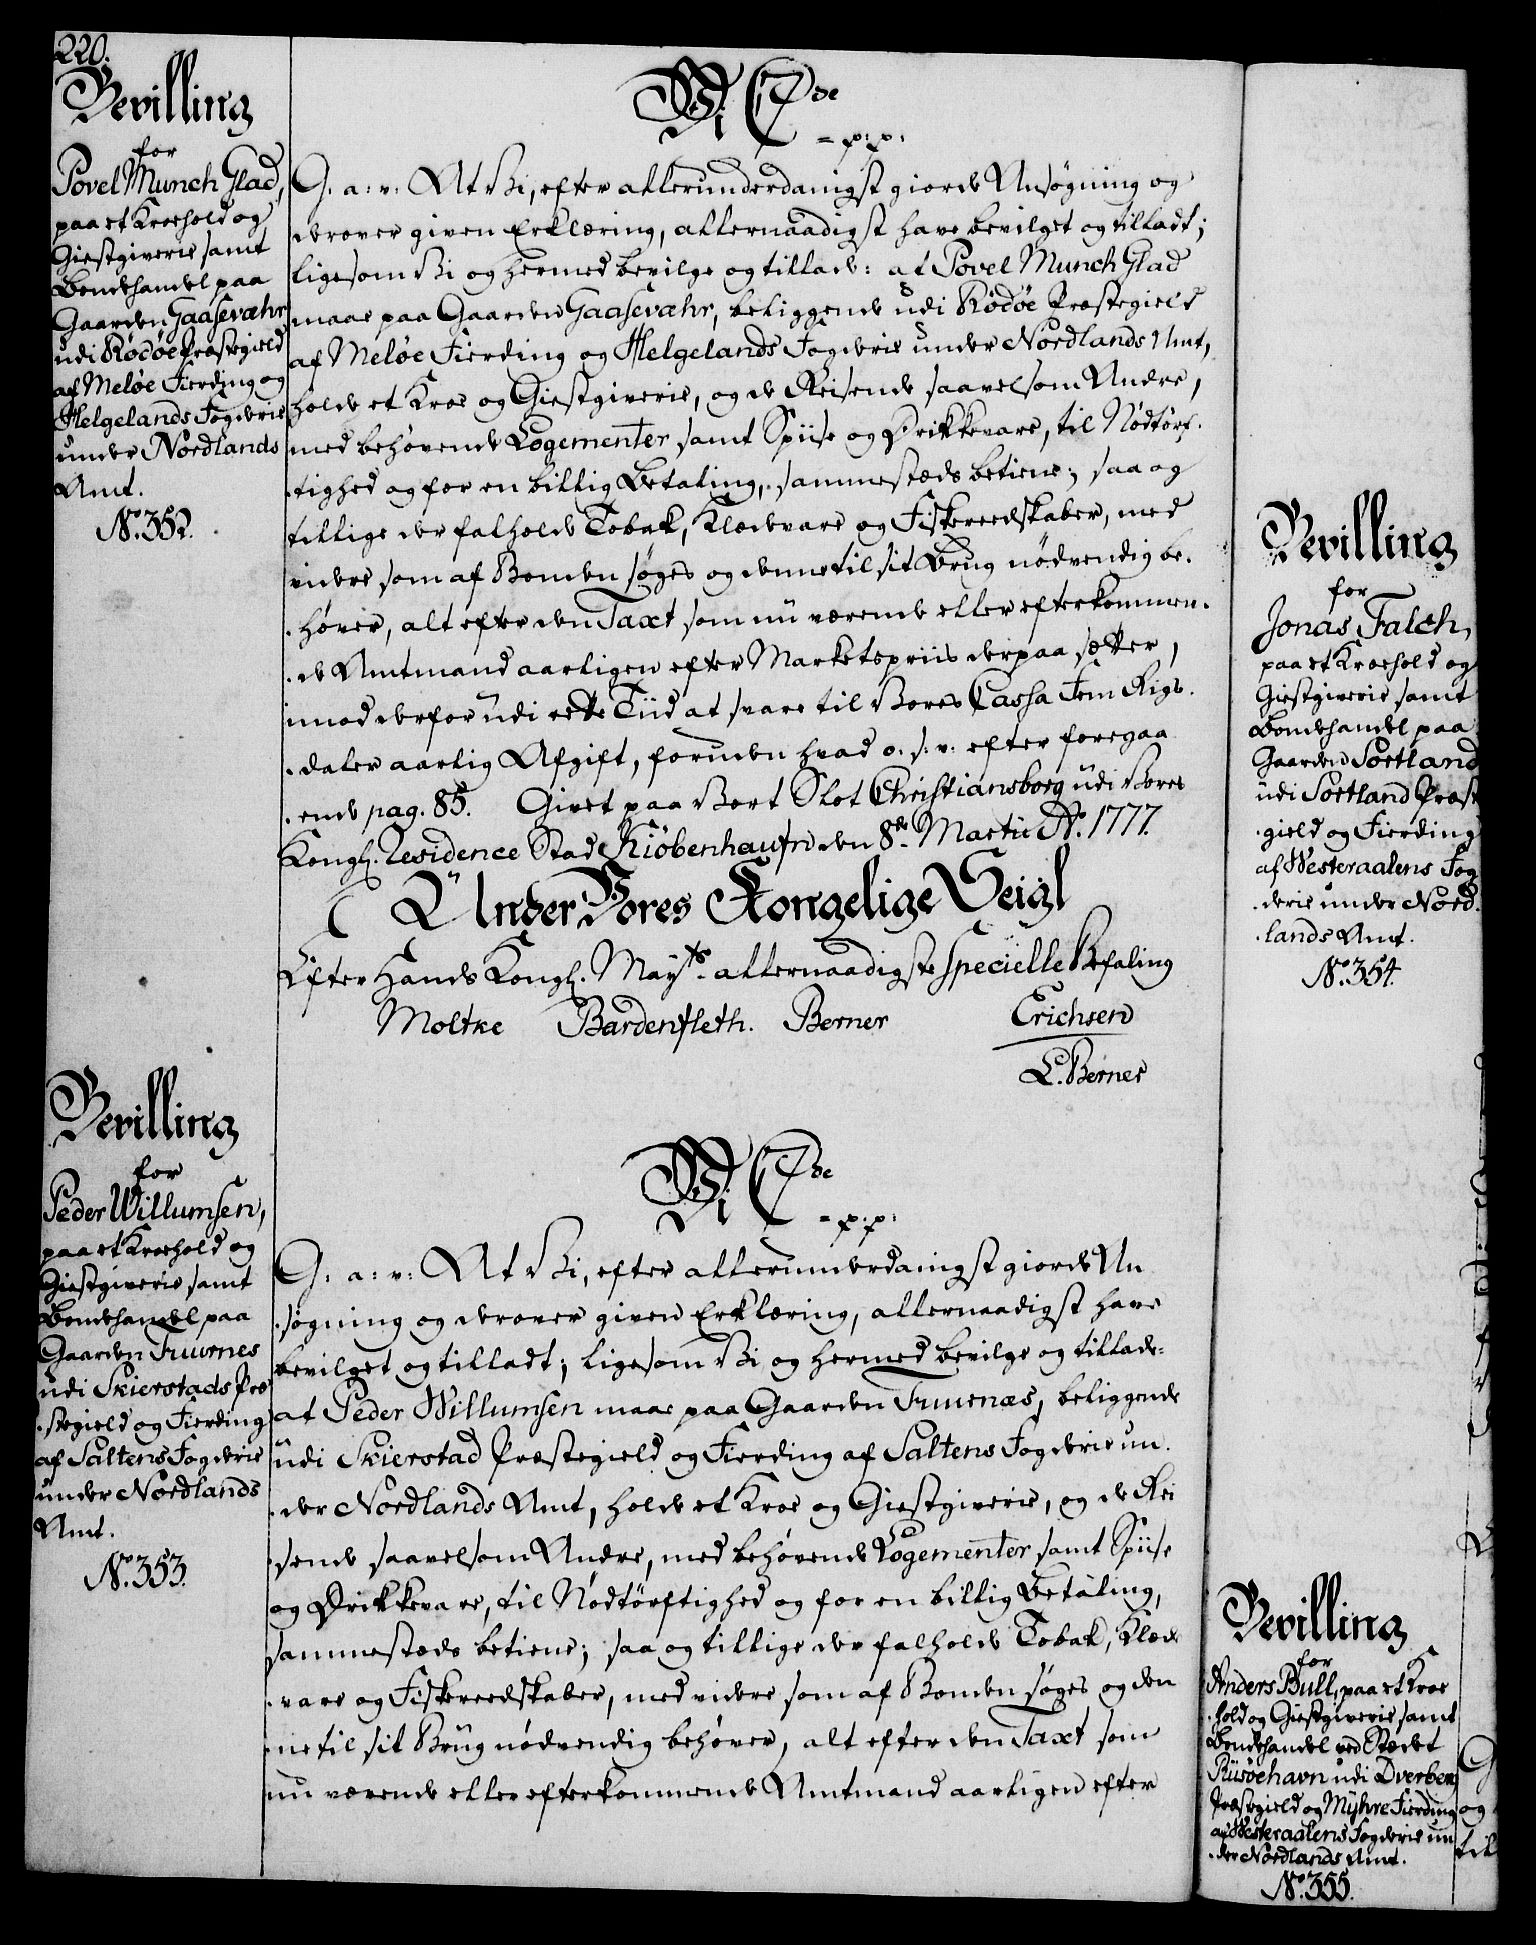 220.
Bevilling
for
Povel Munch Glad,
paa et Kroehold og
Giestgiverie samt
Bondehandel paa
Gaarden Gaasevæhr
udi Rødøe Præstegield
af Meløe Fierding og
Helgelands Fogderie
under Nordlands
Amt.
No. 352.
Vi C 7de
= p: p:
G: a: v: At Vi, efter allerunderdanigst giorde Ansøgning og
derover given Erklæring, allernaadigst have bevilget og tilladt;
ligesom Vi og hermed bevilge og tillade: at Povel Munch Glad
maae paa Gaarden Gaasevæhr, beliggende udi Rødøe Præstegield
af Meløe Fierding og Helgelands Fogderie under Nordlands Amt,
holde et Kroe og Giestgiverie, og de Reisende saavelsom Andre,
med behøvende Logementer samt Spiise og Drikkevare, til Nødtørf-
-tighed og for en billig Betaling, sammestæds betiene; saa og
tillige der falholde Tobak, Klædevare og Fiskereedskaber, med
videre som af Bonden søges og denne til sit Brug nødvendig be-
-høver, alt efter den Taxt som nu værende eller efterkommen-
-de Amtmand aarligen efter Marketspriis derpaa sætter,
imod derfor udi rette Tiid at svare til Vores Cassa Fem Rigs-
-daler aarlig Afgift, foruden hvad o. s. v: efter foregaa
-ende pag. 85. Givet paa Vort Slot Christiansborg udi Vores
Kongl. Residence Stad Kiøbenhaufn den 8de Martii Ao. 1777.
Under Vores Kongelige Seigl
Efter Hands Kongl. Mayts. allernaadigste specielle Befaling
Moltke Bardenfleth. Berner Erichsen
L. Berner
Bevilling
for
Peder Willumsen,
paa et Kroehold og
Giestgiverie samt
Bondehandel paa
Gaarden Fuurnes
udi Skierstads Præ
-stegield og Fierding
af Saltens Fogderie
under Nordlands
Amt.
No. 353.
Vi C 7de
= p: p:
G: a: v: At Vi, efter allerunderdanigst giorde An
-søgning og derover given Erklæring, allernaadigst have
bevilget og tilladt; ligesom Vi og hermed bevilge og tillade:
at Peder Willumsen maae paa Gaarden Fuurnæs, beliggende
udi Skierstad Præstegield og Fierding af Saltens Fogderie un-
-der Nordlands Amt, holde et Kroe og Giestgiverie, og de Rei
-sende saavelsom Andre, med behøvende Logementer samt Spiise
og Drikkevare, til Nødtørftighed og for en billig Betaling,
sammestæds betiene; saa og tillige der falholde Tobak, Klæde
-vare og Fiskereedskaber, med videre som af Bonden søges og den
-ne til sit Brug nødvendig behøver, alt efter den Taxt som
nu værende eller efterkommende Amtmand aarligen efter
Bevilling
for
Jonas Falch,
paa et Kroehold og
Giestgiverie samt
Bondehandel paa
Gaarden Sortland
udi Sortland Præste
-gield og Fierding
af Westeraalens Fog
-derie under Nord-
-lands Amt.
No. 354.
Bevilling
for
Anders Bull, paa et Kroe
-hold og Giestgiverie samt
Bondehandel ved Stædet
Riisøehavn udi Dverberg
Præstegield og Myhre Fierding
af Westeraalens Fogderie un
-der Nordlands Amt.
No. 355.